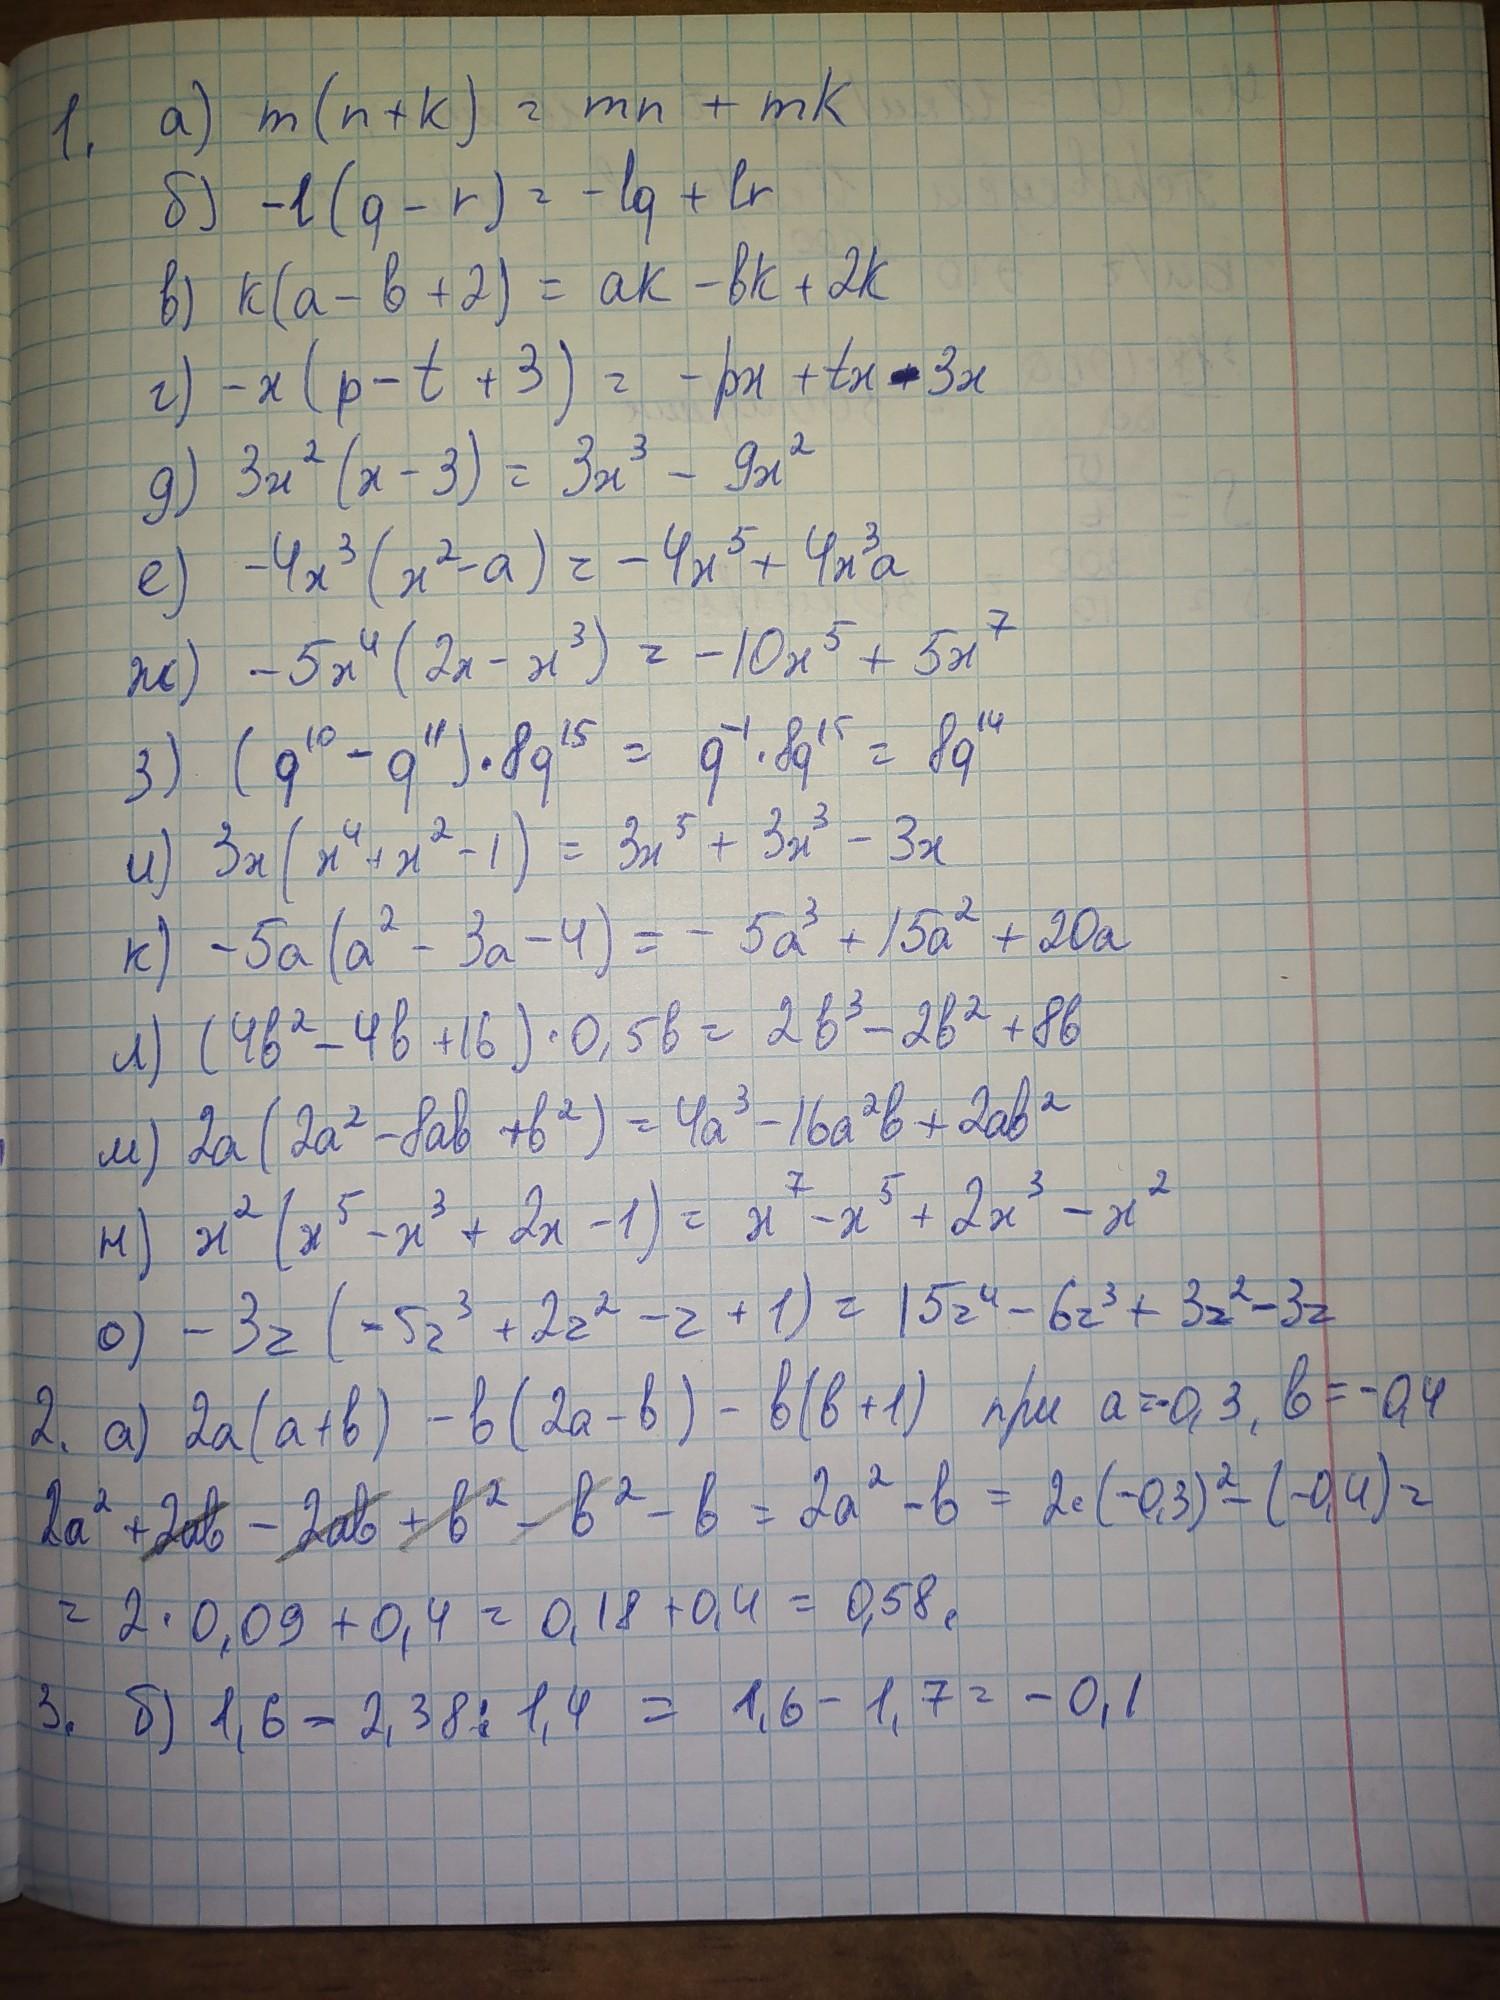 1. а) m(n+k) = mn + mk
б) -l(q-r) = -lq + lr
в) k(a-b+2) = ak - bk + 2k
г) -x(p-t+3) = -px + tx - 3x
д) 3x²(x-3) = 3x³ - 9x²
е) -4x³(x²-a) = -4x⁵ + 4x³a
ж) -5x⁴(2x-x³) = -10x⁵ + 5x⁷
з) (q¹⁰ - q¹¹)·8q¹⁵ = q⁻¹·8q¹⁵ = 8q¹⁴
и) 3x(x⁴+x²-1) = 3x⁵ + 3x³ - 3x
к) -5a(a² - 3a - 4) = -5a³ + 15a² + 20a
л) (4b² - 4b + 16)·0,5b = 2b³ - 2b² + 8b
м) 2a(2a² - 8ab + b²) = 4a³ - 16a²b + 2ab²
н) x²(x⁵ - x³ + 2x - 1) = x⁷ - x⁵ + 2x³ - x²
о) -3z(-5z³ + 2z² - z + 1) = 15z⁴ - 6z³ + 3z² - 3z
2. а) 2a(a+b) - b(2a-b) - b(b+1) при a=-0,3, b=-0,4
2a² + 2ab - 2ab + b² - b² - b = 2a² - b = 2·(-0,3)² - (-0,4) =
= 2·0,09 + 0,4 = 0,18 + 0,4 = 0,58.
3. б) 1,6 - 2,38 : 1,4 = 1,6 - 1,7 = -0,1